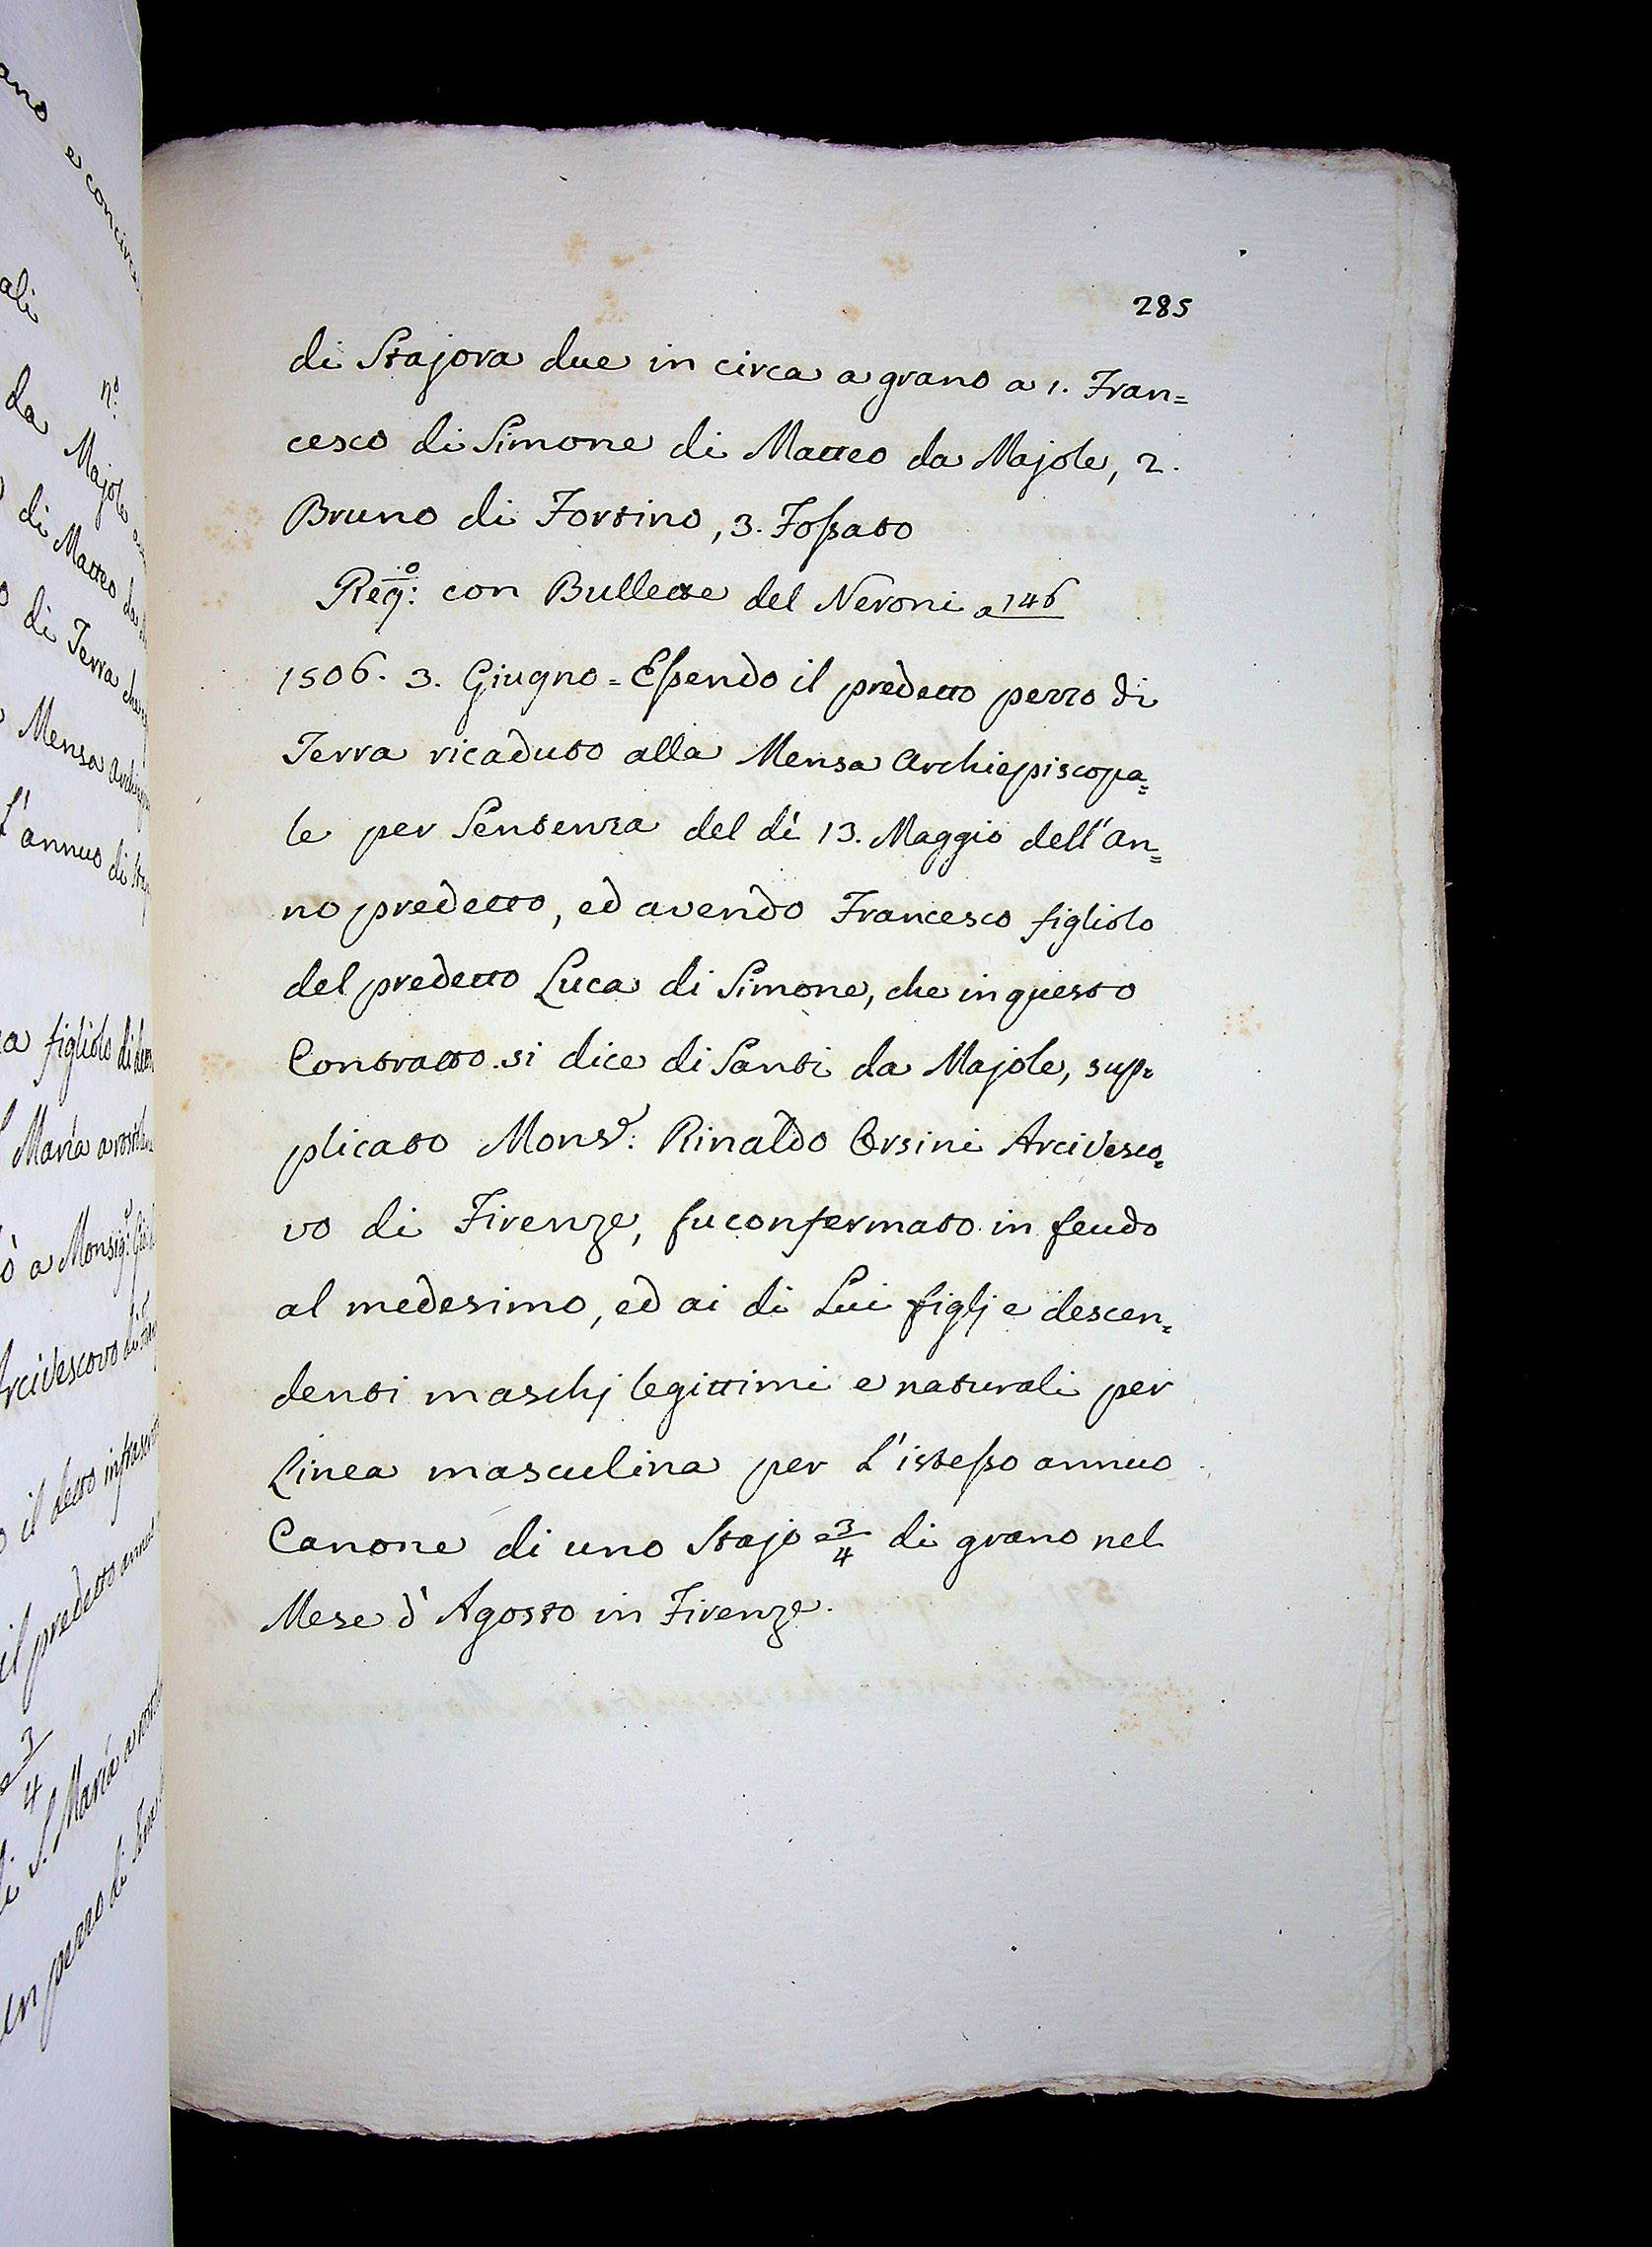 285
di Stajora due in circa a grano a 1. Fran=
cesco di Simone di Matteo da Majole, 2.
Bruno di Forsino, 3. Fossato
Reg:º con Bullette del Neroni a 146
1506. 3. Giugno = Essendo il predetto pezzo di
Terra ricaduto alla Mensa Archiepiscopa=
le per Sentenza del dì 13. Maggio dell'An=
no predetto, ed avendo Francesco figliolo
del predetto Luca di Simone, che in questo
Contratto si dice di Santi da Majole, sup=
plicato Monsr: Rinaldo Orsini Arcivesco=
vo di Firenze, fu confermato in feudo
al medesimo, ed ai di Lui figlj e descen=
denti maschj legittimi e naturali per
Linea masculina per L'istesso annuo
Canone di uno Stajo e 3/4 di grano nel
Mese d'Agosto in Firenze.